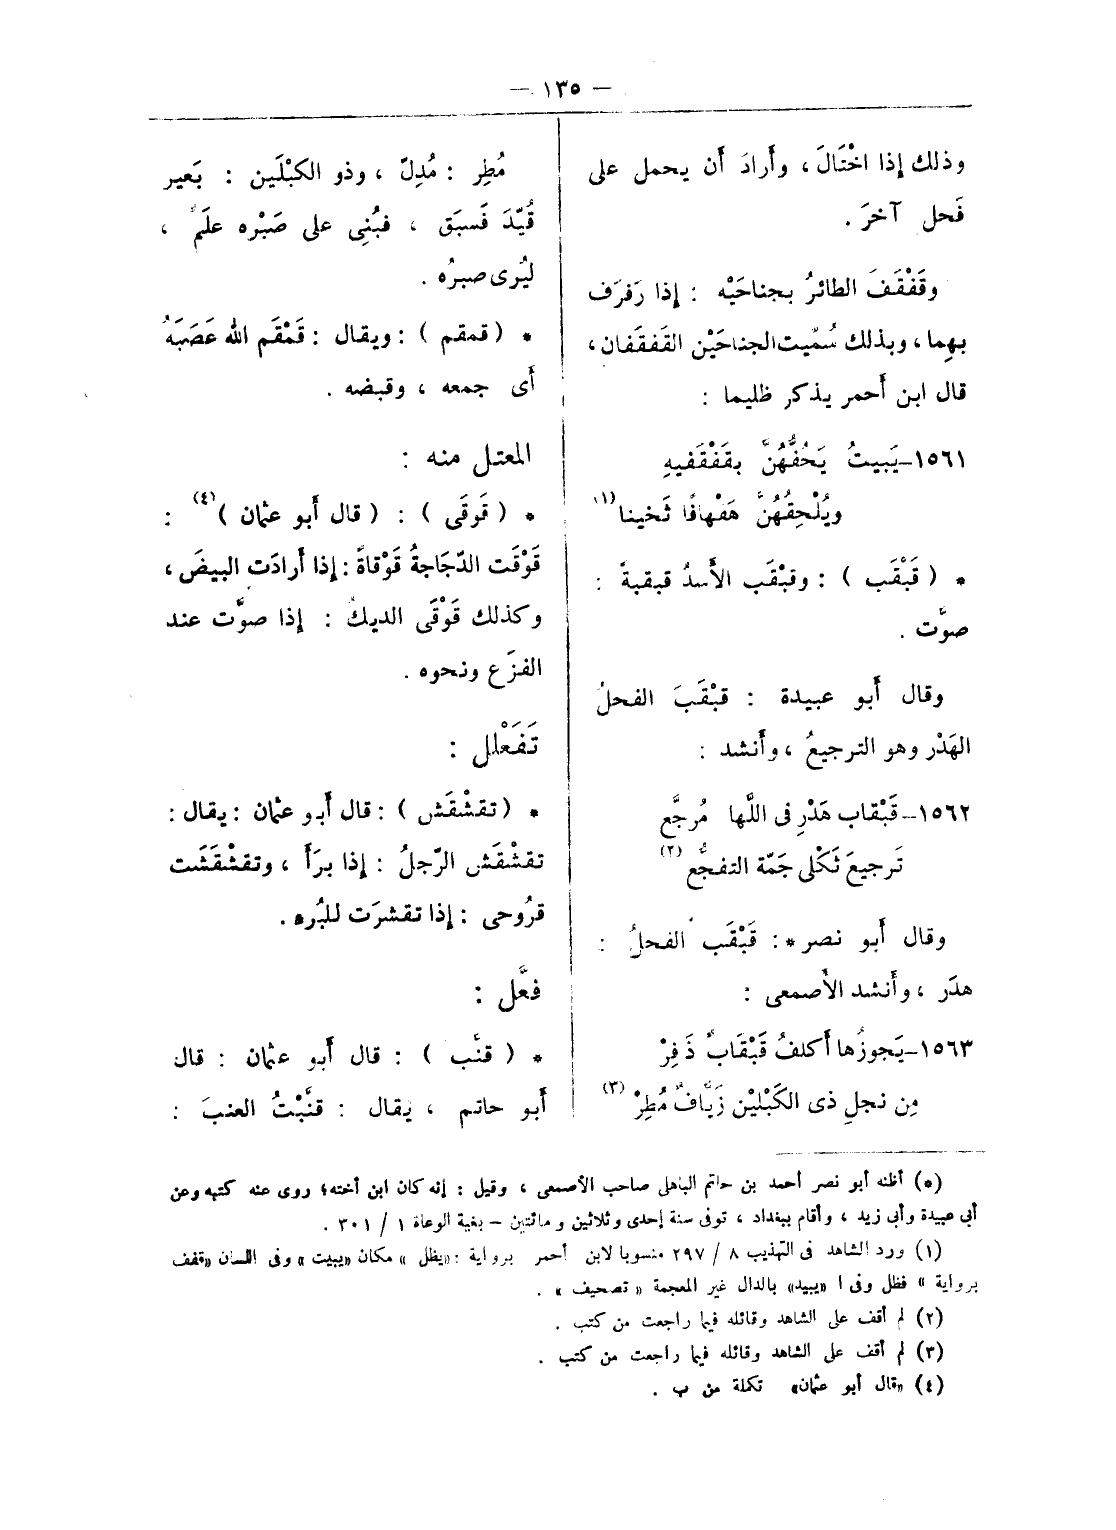 — ١٣٥ —
وذلك إذا اخْتَالَ ، وأَرادَ أَن يحمل على
فَحل آخرَ .
وقَفْقَفَ الطائرُ بجناحَيْه : إِذا رَفرَف
بهِما ، وبذلك سُمّيت الجناحَيْن القَفقَفان ،
قال ابن أَحمر يذكر ظليما :
١٥٦١–يَبيتُ يَحُفُّهُنَّ بقَفْقَفيهِ
ويُلْحِقُهُنَّ هَفْهافًا ثَخينا (١)
* ( قَبْقَب ) : وقبْقَب الأَسدُ قبقبةً :
صوَّت .
وقال أَبو عبيدة : قبْقَبَ الفحلُ
الهَدْر وهو الترجيعُ ، وأَنشد :
١٥٦٢–قَبْقاب هَدْرٍ فى اللَّها مُرجَّع
تَرجيعَ ثَكْلى جَمّة التفجُّع (٢)
وقال أَبو نصر * : قَبْقَب الفحلُ :
هدَر ، وأَنشد الأَصمعى :
١٥٦٣–يَجوزُها أَكلفُ قَبْقابٌ ذَفِرْ
مِن نجلِ ذى الكَبْلَيْن زَيَّافٌ مُطِرْ (٣)
مُطِر : مُدِلّ ، وذو الكبْلَين : بَعير
قُيّدَ فَسبَق ، فبُنِى على صَبْره علَمٌ ،
ليُرى صبرُه .
* ( قمقم ) : ويقال : قَمْقَم الله عَصَبَهُ
أَى جمعه ، وقبضه .
المعتل منه :
* ( قَوقَى ) : ( قال أَبو عثمان ) (٤) :
قَوْقَت الدّجَاجةُ قَوْقاةً : إِذا أَرادَت البيضَ ،
وكذلك قَوْقَى الديكُ : إِذا صوَّت عند
الفزَع ونحوه .
تَفَعْلَل :
* ( تقشْقَش ) : قال أَبو عثمان : يقال :
تقشْقَش الرّجلُ : إِذا برَأَ ، وتقشْقَشَت
قرُوحى : إِذا تقشرَت للبُرء .
فعَّل :
* ( قنَّب ) : قال أَبو عثمان : قال
أَبو حاتم ، يقال : قنَّبْتُ العنبَ :
(*) أظنه أبو نصر أحمد بن حاتم الباهلى صاحب الأصمعى ، وقيل : إنه كان ابن أخته؛ روى عنه كتبه وعن
أبى عبيدة وأبى زيد ، وأقام ببغداد ، توفى سنة إحدى وثلاثين ومائتين – بغية الوعاة ١ / ٣٠١ .
(١) ورد الشاهد فى التهذيب ٨ / ٢٩٧ منسوبا لابن أحمر برواية : «يظل » مكان «يبيت » وفى اللسان «قفف
برواية » فظل وفى ا «يبيد» بالدال غير المعجمة « تصحيف » .
(٢) لم أقف على الشاهد وقائله فيما راجعت من كتب .
(٣) لم أقف على الشاهد وقائله فيما راجعت من كتب .
(٤) «قال أبو عثمان» تكملة من ب .